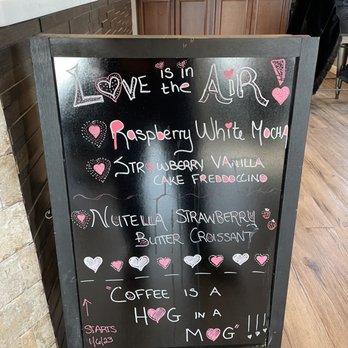 LOVE is in the AiR!
Raspberry White Mocha
STRAWBERRY VANiLLA
CAKE FREDDOCCINO
NUTELLA STRAWBERRY
BUTTER CROISSANT
"COFFEE IS A
HUG IN A
MUG" !!!
STARTS
1/6/23